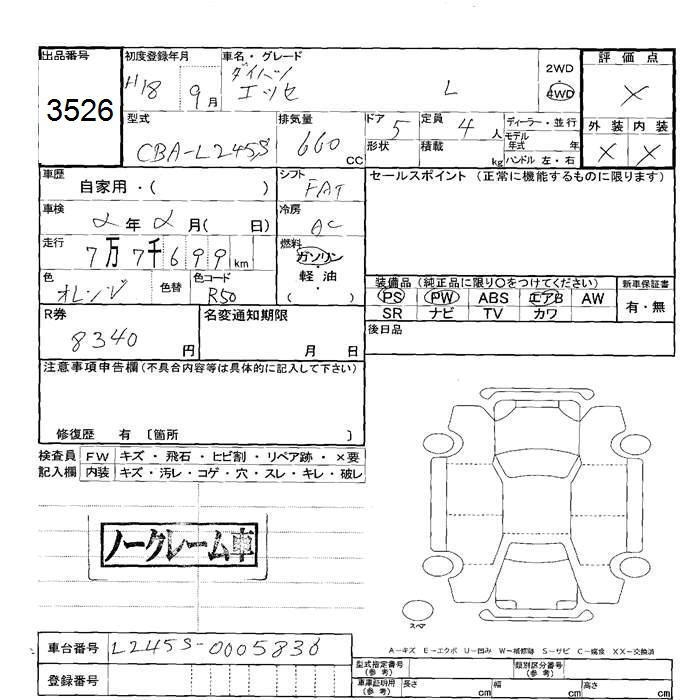 出品番号 初度登録年月 車名・グレード 評価点
3526 H18 9月 ダイハツ エッセ L 2WD 4WD X
型式 排気量 ドア 定員 ディーラー・並行 外装 内装
CBA-L245S 660 CC 5 4人 モデル年式 年 X X
形状 積載 kg ハンドル 左・右
車歴 シフト セールスポイント (正常に機能するものに限ります)
自家用・( ) FAT
車検 冷房
2年2月( 日) AC
走行 燃料
7万7千699km ガソリン・軽油
色 色替 色コード ( )
オレンジ R50
装備品 (純正品に限り○をつけてください) 新車保証書
PS PW ABS エアB AW 有・無
SR ナビ TV カワ
R券 名変通知期限 後日品
8340円 月 日
注意事項申告欄 (不具合内容等は具体的に記入して下さい)
修復歴 有 〔箇所 〕
検査員 FW キズ・飛石・ヒビ割・リペア跡・×要
記入欄 内装 キズ・汚レ・コゲ・穴・スレ・キレ・破レ
ノークレーム車
スペア
A-キズ E-エクボ U-凹み W-補修跡 S-サビ C-腐食 XX-交換済
車台番号 L245S-0005830
登録番号
型式指定番号 (参考) 類別区分番号 (参考)
車庫証明用 (参考) 長さ cm 幅 cm 高さ cm